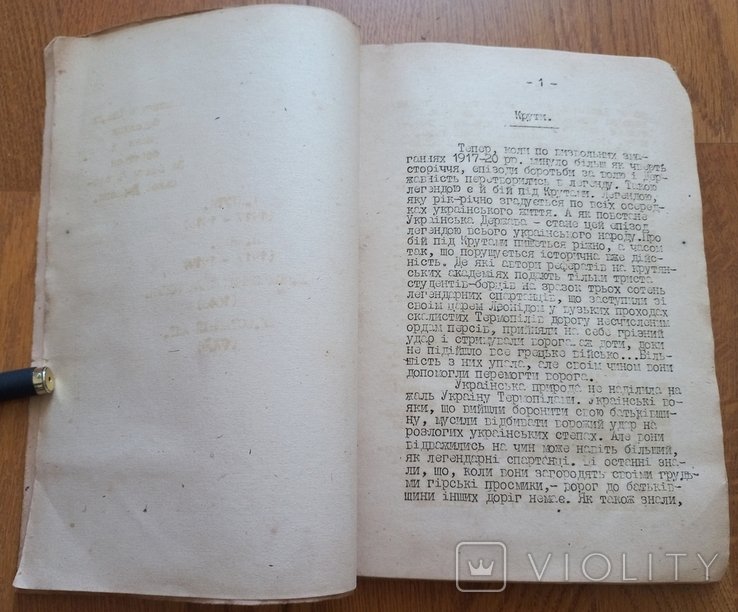 - 1 -
Крути.
Тепер, коли по визвольних зма-
ганнях 1917-20 рр. минуло більш як чверть
сторіччя, епізоди боротьби за волю і дер-
жавність перетворились в легенду. Такою
легендою є й бій під Крутами. Легендою,
яку рік-річно згадується по всіх осеред-
ках українського життя. А як повстане
Українська Держава - стане цей епізод
легендою всього українського народу. Про
бій під Крутами пишеться ріжно, а часом
так, що порушується історична вже дій-
сність. Де які автори рефератів на крутян-
ських академіях подають тільки триста
студентів-борців на зразок трьох сотень
легендарних спартанців, що заступили зі
своїм царем Леонідом у вузьких проходах
скалистих Термопілів дорогу несчисленим
ордам персів, прийняли на себе грізний
удар і стримували ворога аж доти, доки
не підійшло все грецьке військо...Біль-
шість з них упала, але своїм чином вони
допомогли перемогти ворога.
Українська природа не наділила на
жаль Україну Термопілами. Українські во-
яки, що вийшли боронити свою батьківщи-
ну, мусили відбивати ворожий удар на
розлогих українських степах. Але вони
відражились на чин може навіть більший,
як легендарні спартанці. Ці останні зна-
ли, що, коли вони загородять своїми грудь-
ми гірські просмики,- ворог до батьків-
щини інших доріг немає. Як також знали,
VIOLITY